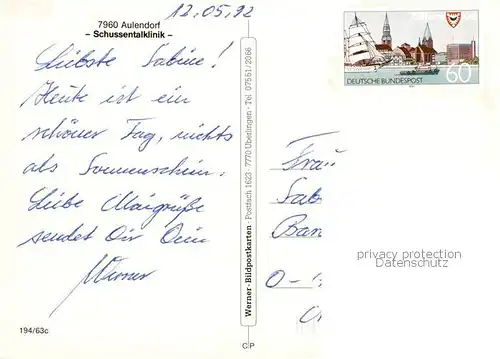 12.05.92
7960 Aulendorf
- Schussentalklinik -
Liebste Sabine!
Heute ist ein
schöner Tag, nichts
als Sonnenschein.
Liebe Maigrüße
sendet Dir Dein
Werner
194/63c
Werner-Bildpostkarten · Postfach 1623 · 7770 Überlingen · Tel 07551/2066
C P
DEUTSCHE BUNDESPOST
60
Frau
Sab
Ban
O-
privacy protection
Datenschutz